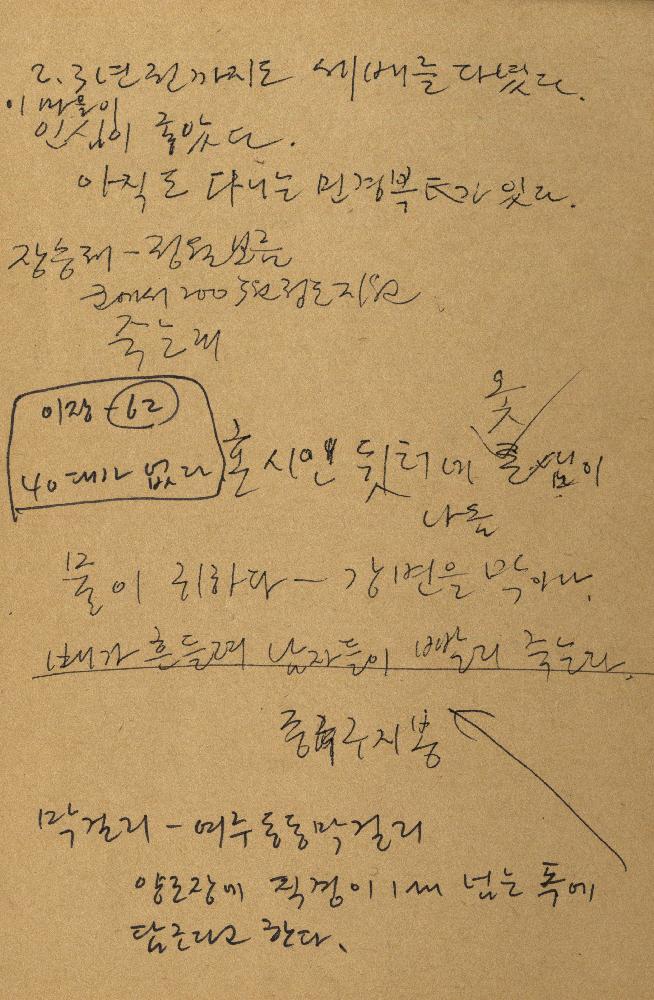 2.3년전까지도 세배를 다녔다.
이 마을이
인심이 좋았다.
아직도 다니는 민경복氏가 있다.
장승제 - 정월보름
군에서 200 정도지원
죽는데
이장 - 62
40대가 없다
혼 시엔 뒷터에 옻샘이
나옴
물이 귀하다 - 강변을 막아나.
배가 흔들려 남자들이 빨리 죽는다.
구지봉
막걸리 - 여수동동막걸리
양조장에 직경이 1m 넘는 독에
담근다고 한다.